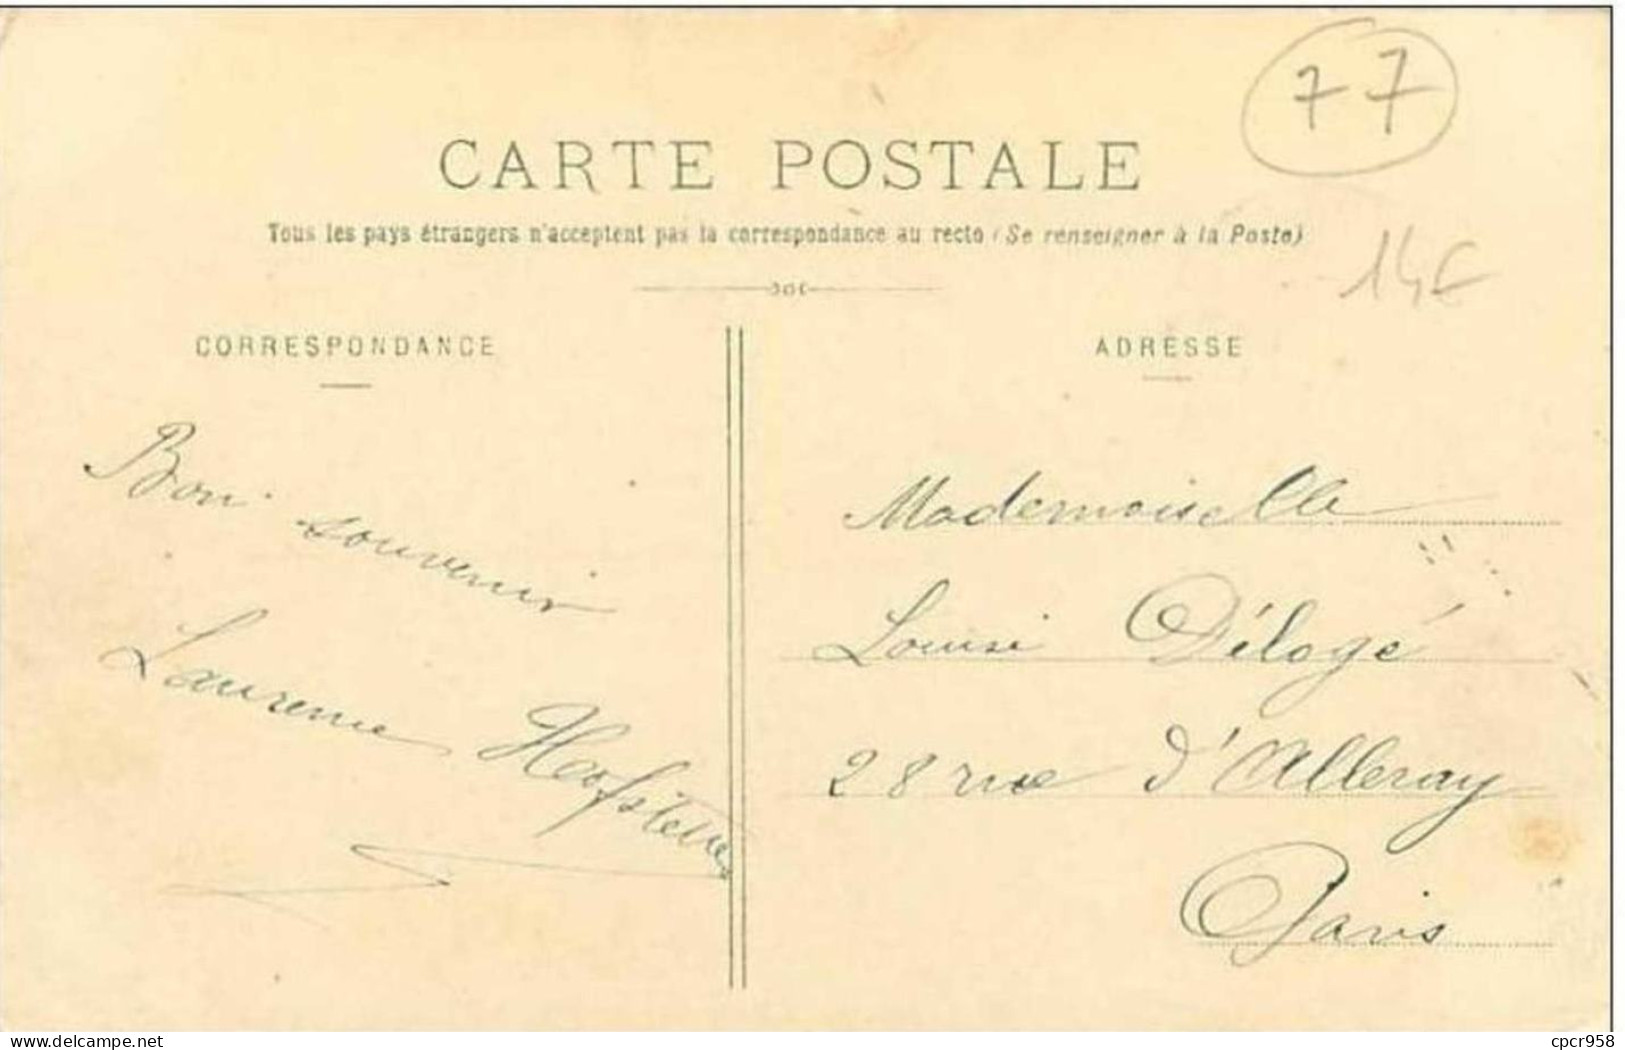 77
CARTE POSTALE
Tous les pays étrangers n'acceptent pas la correspondance au recto (Se renseigner à la Poste)
14€
CORRESPONDANCE
Bon souvenir
Laurence
ADRESSE
Mademoiselle
Louise Délogé
28 rue d'Alleray
Paris
delcampe.net
cpcr958